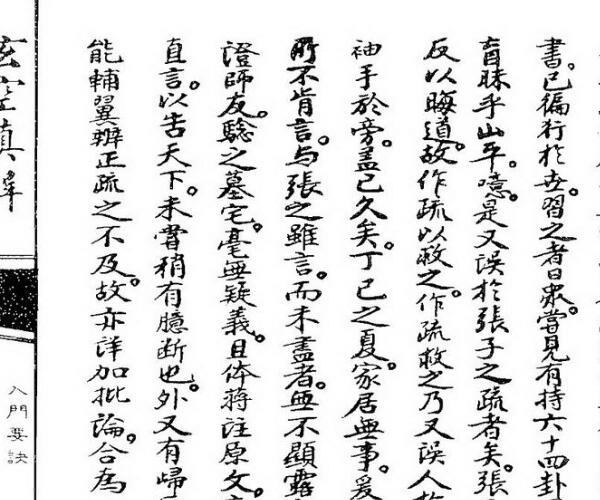 書。已徧行於世。習之者日衆。嘗見有持六十四卦
盲昧乎山平。噫。是又誤於張子之疏者矣。張
反以晦道。故作疏以救之。作疏救之。乃又誤人。故
袖手於旁。蓋已久矣。丁巳之夏。家居無事。爰
所不肯言。与張之雖言。而未盡者。無不顯露
證師友。驗之墓宅。毫無疑義。且体蔣註原文
直言。以告天下。未嘗稍有臆断也。外又有歸
能輔翼辨正疏之不及。故亦詳加批論。合為
玄空真
入門要訣